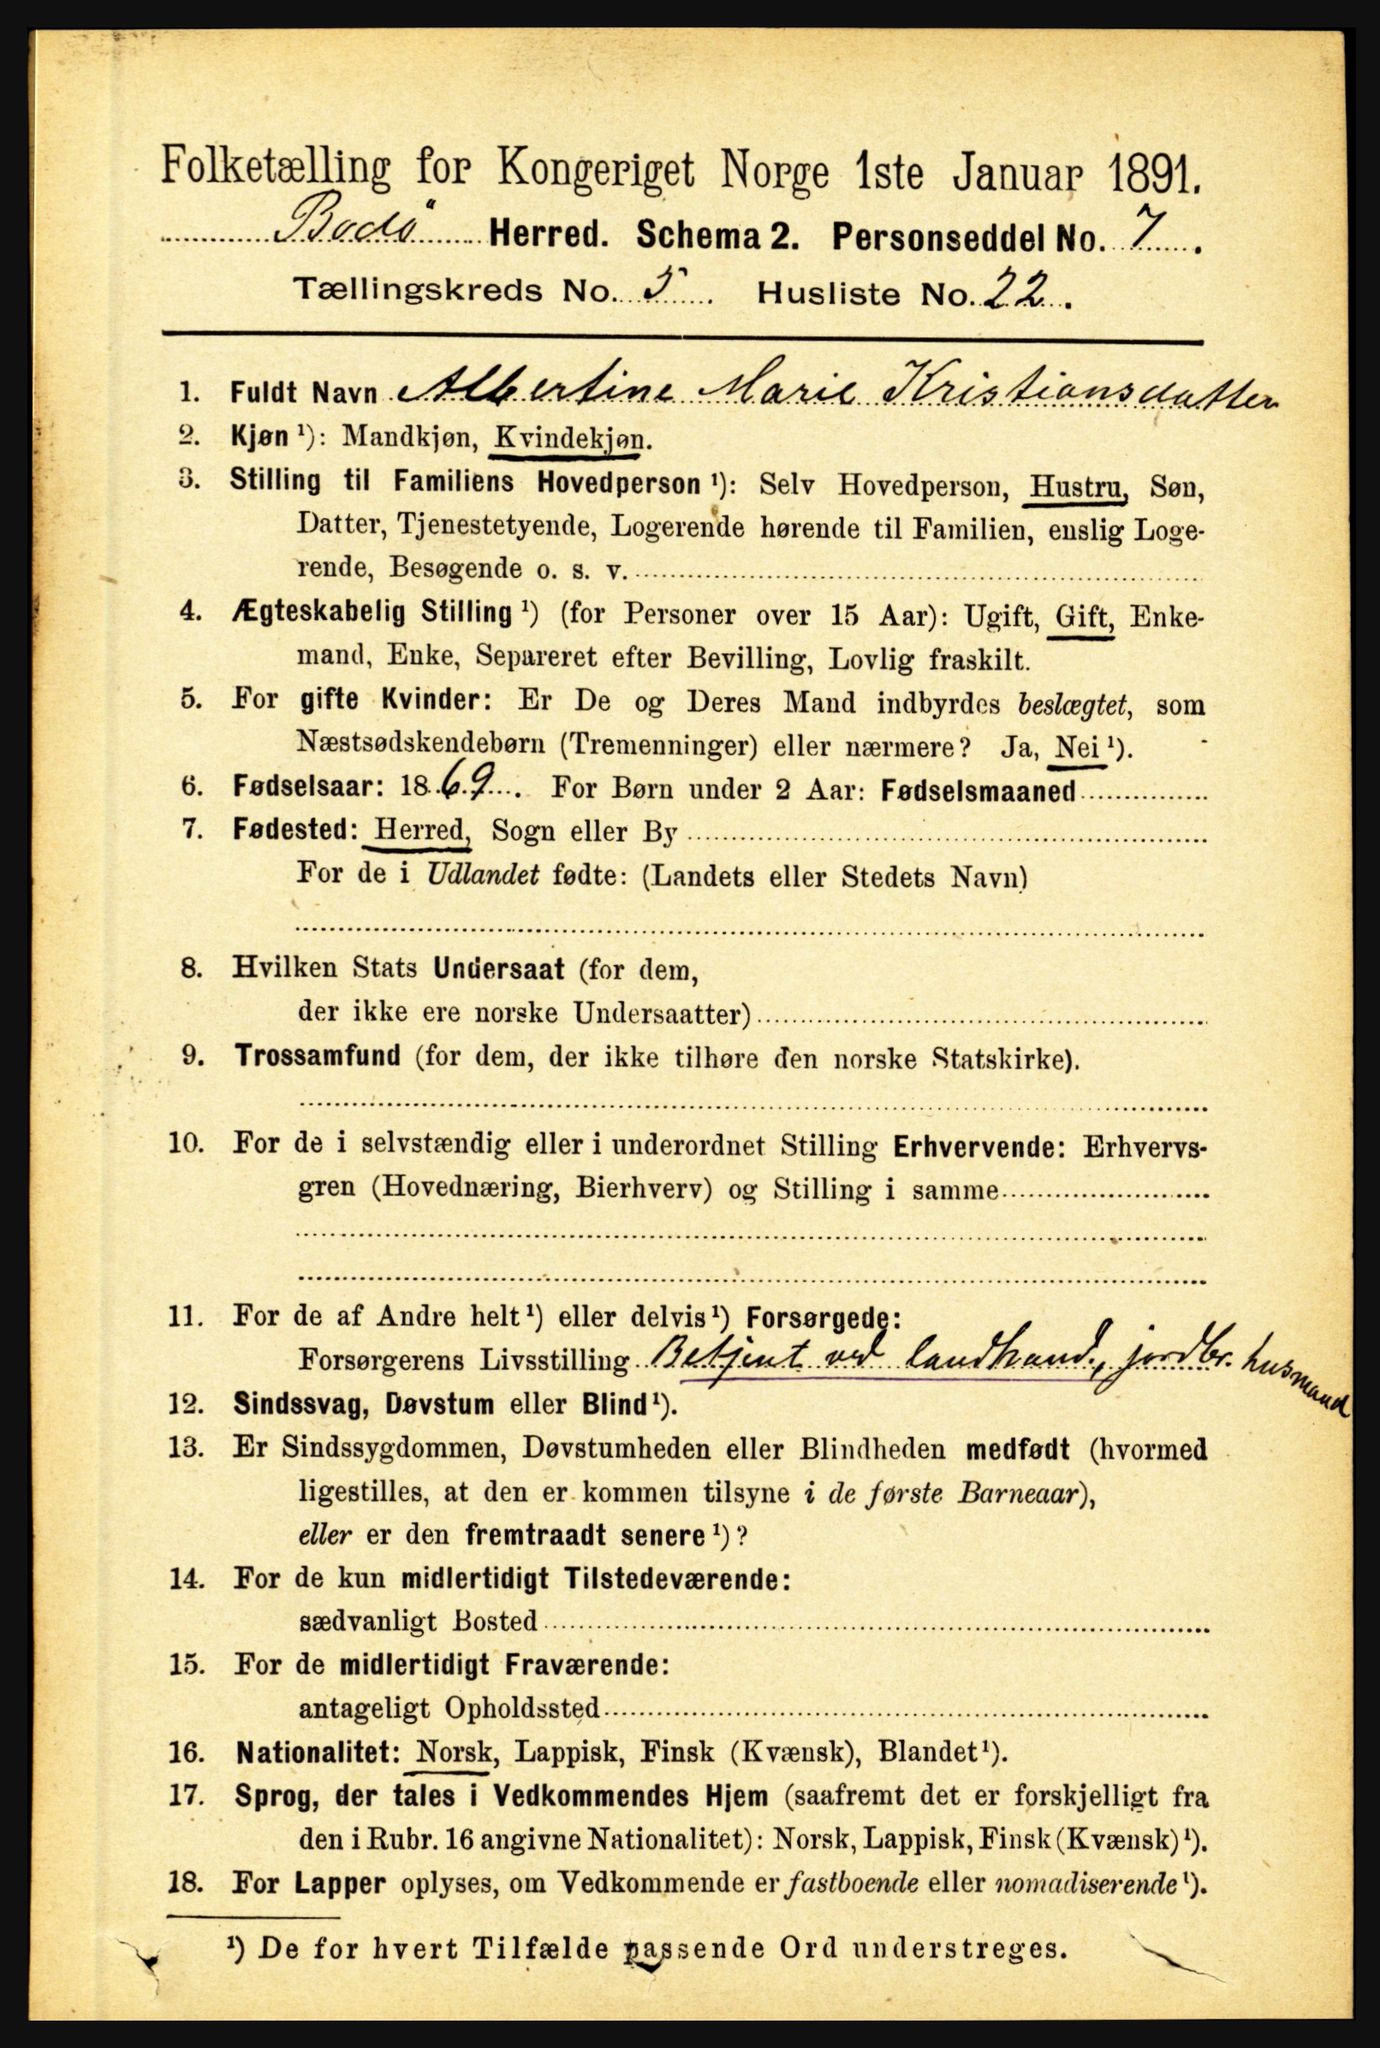 Folketælling for Kongeriget Norge 1ste Januar 1891.
Bodö Herred. Schema 2. Personseddel No. 7.
Tællingskreds No. 5. Husliste No. 22.
1. Fuldt Navn Albertine Marie Kristiansdatter
2. Kjøn ¹): Mandkjøn, Kvindekjøn.
3. Stilling til Familiens Hovedperson ¹): Selv Hovedperson, Hustru, Søn,
Datter, Tjenestetyende, Logerende hørende til Familien, enslig Loge-
rende, Besøgende o. s. v.
4. Ægteskabelig Stilling ¹) (for Personer over 15 Aar): Ugift, Gift, Enke-
mand, Enke, Separeret efter Bevilling, Lovlig fraskilt.
5. For gifte Kvinder: Er De og Deres Mand indbyrdes beslægtet, som
Næstsødskendebørn (Tremenninger) eller nærmere? Ja, Nei ¹).
6. Fødselsaar: 1869. For Børn under 2 Aar: Fødselsmaaned
7. Fødested: Herred, Sogn eller By
For de i Udlandet fødte: (Landets eller Stedets Navn)
8. Hvilken Stats Undersaat (for dem,
der ikke ere norske Undersaatter)
9. Trossamfund (for dem, der ikke tilhøre den norske Statskirke).
10. For de i selvstændig eller i underordnet Stilling Erhvervende: Erhvervs-
gren (Hovednæring, Bierhverv) og Stilling i samme
11. For de af Andre helt ¹) eller delvis ¹) Forsørgede:
Forsørgerens Livsstilling Betjent ved landhand., jordbr. husmand
12. Sindssvag, Døvstum eller Blind ¹).
13. Er Sindssygdommen, Døvstumheden eller Blindheden medfødt (hvormed
ligestilles, at den er kommen tilsyne i de første Barneaar),
eller er den fremtraadt senere ¹)?
14. For de kun midlertidigt Tilstedeværende:
sædvanligt Bosted
15. For de midlertidigt Fraværende:
antageligt Opholdssted
16. Nationalitet: Norsk, Lappisk, Finsk (Kvænsk), Blandet ¹).
17. Sprog, der tales i Vedkommendes Hjem (saafremt det er forskjelligt fra
den i Rubr. 16 angivne Nationalitet): Norsk, Lappisk, Finsk (Kvænsk) ¹).
18. For Lapper oplyses, om Vedkommende er fastboende eller nomadiserende ¹).
¹) De for hvert Tilfælde passende Ord understreges.